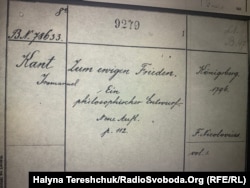 8º
9279
B.K.78633.
Kant
Immanuel
Zum ewigen Frieden.
Ein
philosophischer Entwurf.
Neue Aufl.
p. 112.
Königsberg
1796.
F. Nicolovius
vol. 1
Halyna Tereshchuk/RadioSvoboda.Org (RFE/RL)